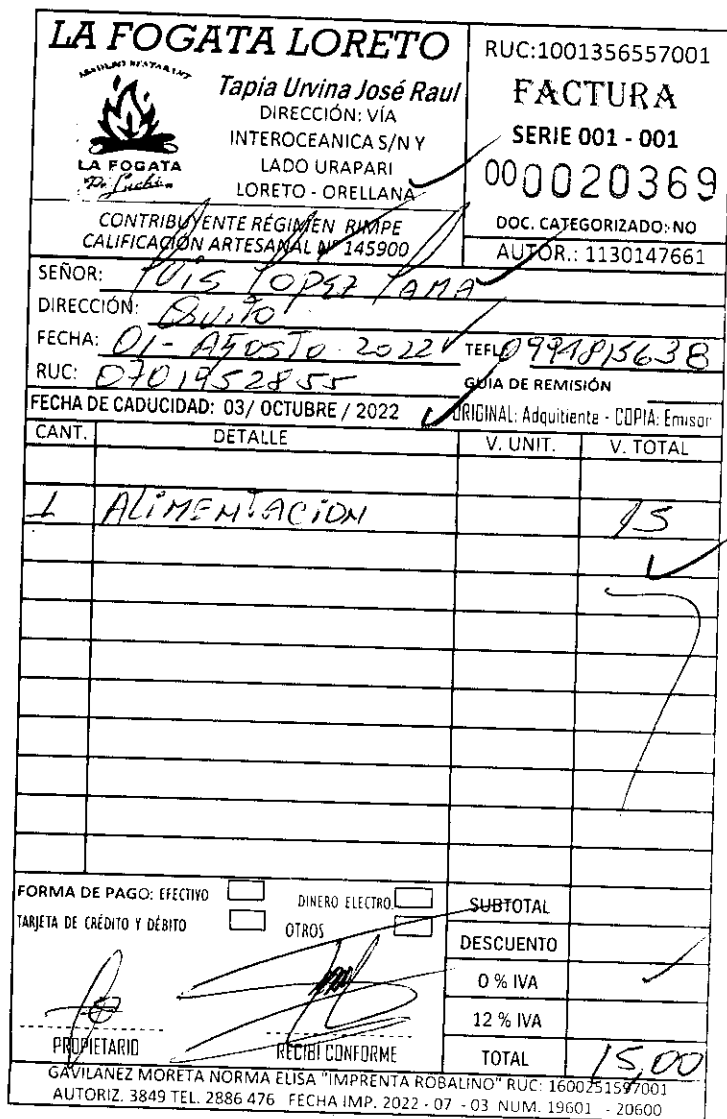 LA FOGATA LORETO
ASADERO RESTAURANT
LA FOGATA
"De Luchin"
Tapia Urvina José Raul
DIRECCIÓN: VÍA
INTEROCEANICA S/N Y
LADO URAPARI
LORETO - ORELLANA
CONTRIBUYENTE RÉGIMEN RIMPE
CALIFICACIÓN ARTESANAL Nº 145900
RUC:1001356557001
FACTURA
SERIE 001 - 001
000020369
DOC. CATEGORIZADO: NO
AUTOR.: 1130147661
SEÑOR: Luis Lopez Lama
DIRECCIÓN: Quito
FECHA: 01 - Agosto - 2022 TEFL. 0991815638
RUC: 0701952855 GUIA DE REMISIÓN
FECHA DE CADUCIDAD: 03/ OCTUBRE / 2022 ORIGINAL: Adquitiente - COPIA: Emisor
CANT. DETALLE V. UNIT. V. TOTAL
1 ALIMENTACION 15
FORMA DE PAGO: EFECTIVO DINERO ELECTRO.
TARJETA DE CRÉDITO Y DÉBITO OTROS
SUBTOTAL
DESCUENTO
0 % IVA
12 % IVA
PROPIETARIO RECIBI CONFORME TOTAL 15,00
GAVILANEZ MORETA NORMA ELISA "IMPRENTA ROBALINO" RUC: 1600251597001
AUTORIZ. 3849 TEL. 2886 476 FECHA IMP. 2022 - 07 - 03 NUM. 19601 - 20600